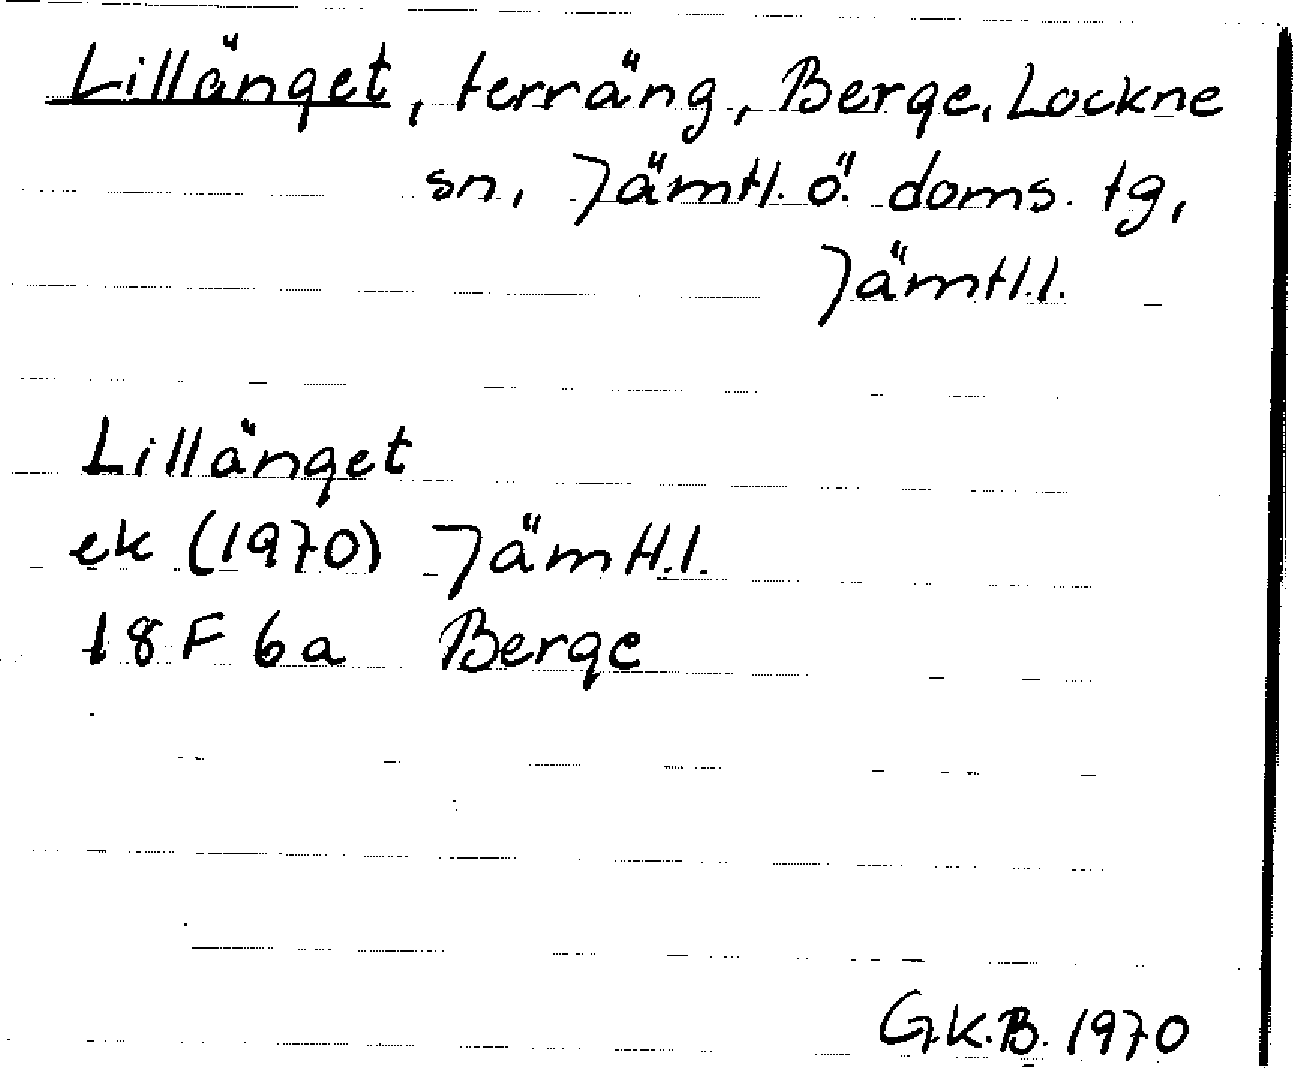 Lillänget, terräng, Berge, Lockne
sn, Jämtl. ö. doms. tg,
Jämtl.l.
Lillänget
ek (1970) Jämtl.l.
18 F 6a Berge
G.K.B. 1970